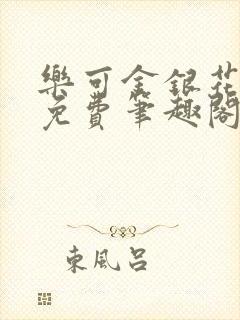 樂可金銀花
免費筆趣閣
東風呂